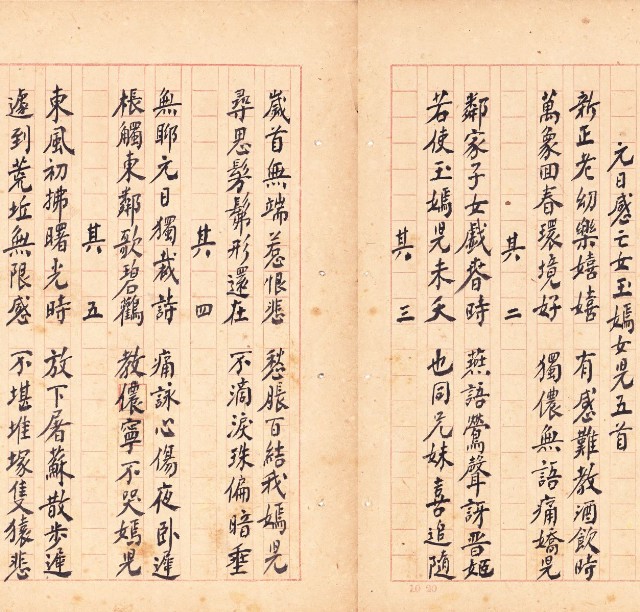 元日感亡女玉嫣女兒五首
新正老幼樂嬉嬉 有感難教酒飲時
萬象回春環境好 獨儂無語痛嬌兒
其二
鄰家子女戲春時 燕語鶯聲訝晋姬
若使玉嫣兒未夭 也同兄妹喜追隨
其三
歲首無端惹恨悲 愁腸百結我嫣兒
尋思髣髴形還在 不滴淚珠偏暗垂
其四
無聊元日獨裁詩 痛詠心傷夜卧遲
棖觸東鄰歌碧鸛 教儂寧不哭嫣兒
其五
東風初拂曙光時 放下屠蘇散步遲
遽到荒坵無限感 不堪堆塚隻猿悲
20 20